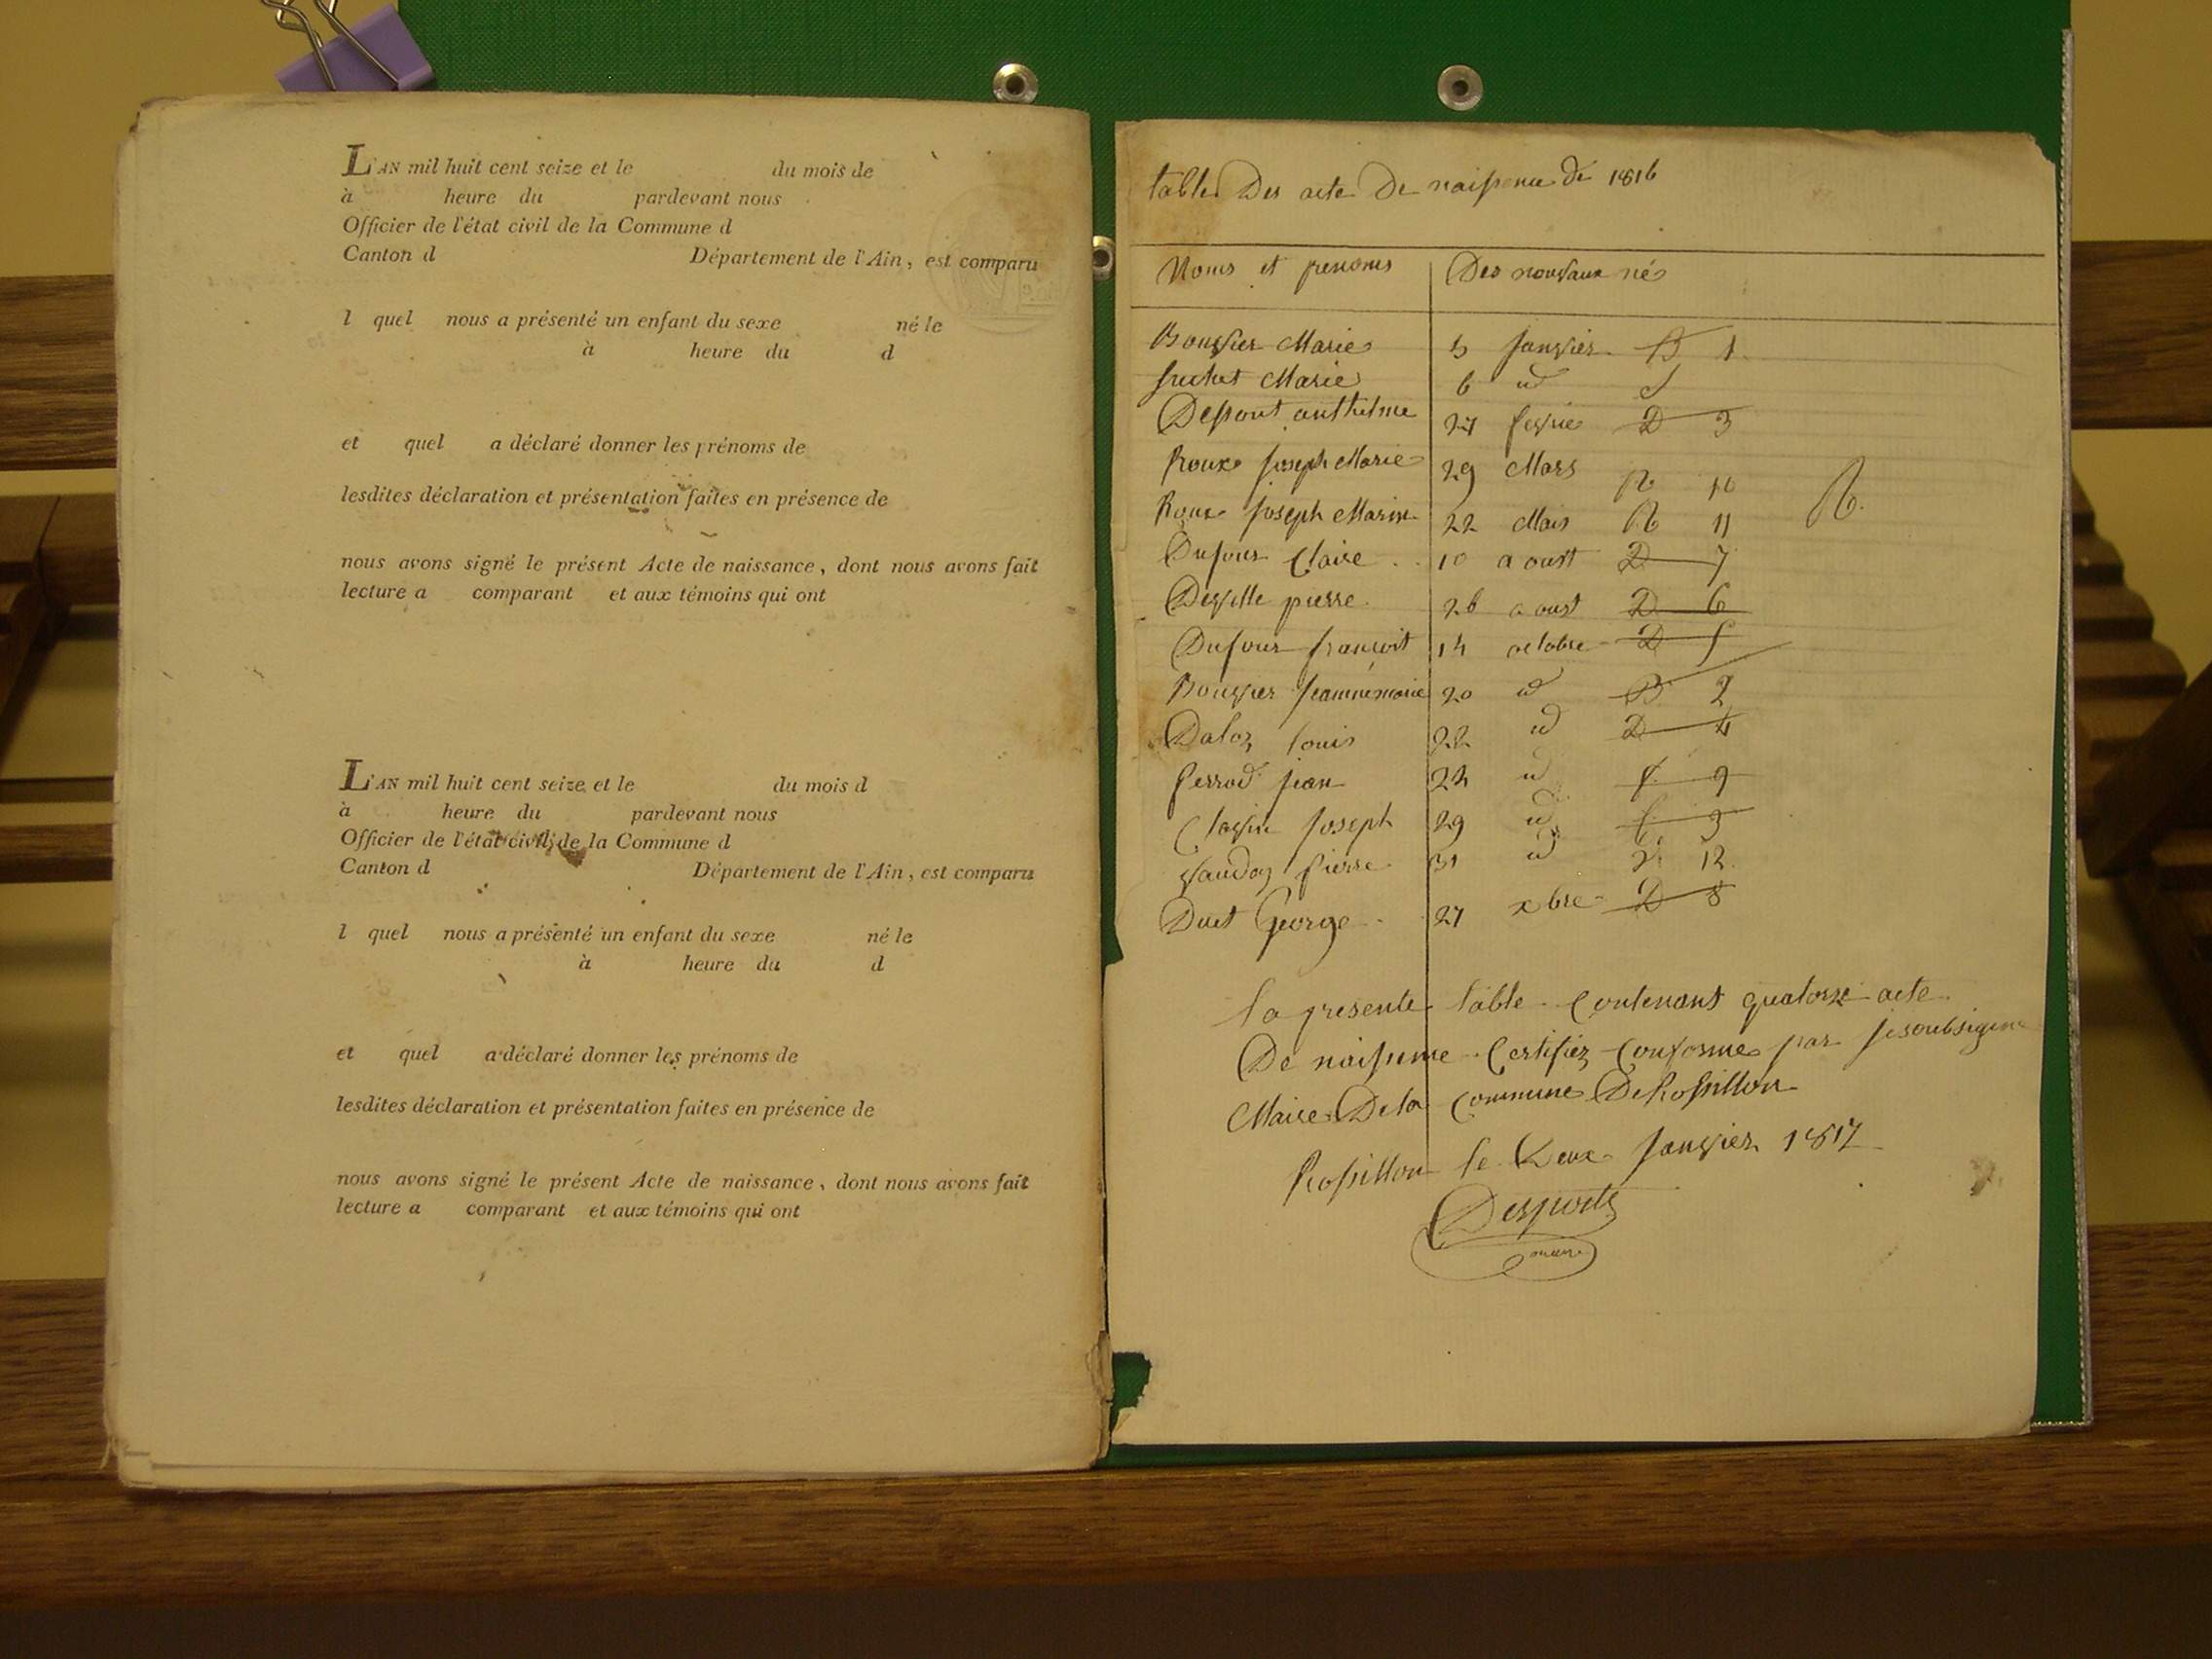 L'AN mil huit cent seize et le du mois de
à heure du pardevant nous
Officier de l'état civil de la Commune d
Canton d Département de l'Ain, est comparu
l quel nous a présenté un enfant du sexe né le
à heure du d
et quel a déclaré donner les prénoms de
lesdites déclaration et présentation faites en présence de
nous avons signé le présent Acte de naissance, dont nous avons fait
lecture a comparant et aux témoins qui ont
L'AN mil huit cent seize et le du mois d
à heure du pardevant nous
Officier de l'état civil de la Commune d
Canton d Département de l'Ain, est comparu
l quel nous a présenté un enfant du sexe né le
à heure du d
et quel a déclaré donner les prénoms de
lesdites déclaration et présentation faites en présence de
nous avons signé le présent Acte de naissance, dont nous avons fait
lecture a comparant et aux témoins qui ont
table Des acte De naissance de 1816
Noms et prenoms Des nouvaux nés
Bouvier Marie 5 Janvier B 1
Marie 6 id
anthelme 27 fevrie D 3
Roux Joseph Marie 29 Mars R 10
Roux Joseph Marin 22 Mais R 11
Dufour Claire 10 aoust D 7
Deville pierre 26 aoust D 6
Dufour françoit 14 octobre D 5
Bouvier Jeannemarie 20 id B 2
Daloz louis 22 id D 4
perrod jean 24 id P 9
Clavin Joseph 29 id C 3
vaudoz pierre 31 id V 12
Duet George 27 xbre D 8
la presente table Contenant quatorze acte
De naissence Certifiez Conforme par Jesoubsigne
Maire Dela Commune De Rossillon
Rossillon le Deux Janvier 1817
Desports
maire